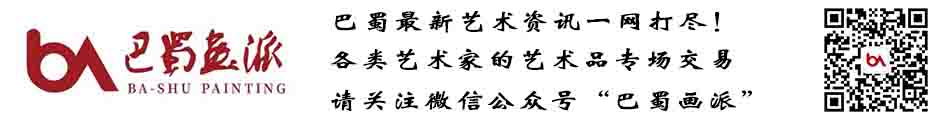 巴蜀画派
BA-SHU PAINTING
巴蜀最新艺术资讯一网打尽！
各类艺术家的艺术品专场交易
请关注微信公众号“巴蜀画派”